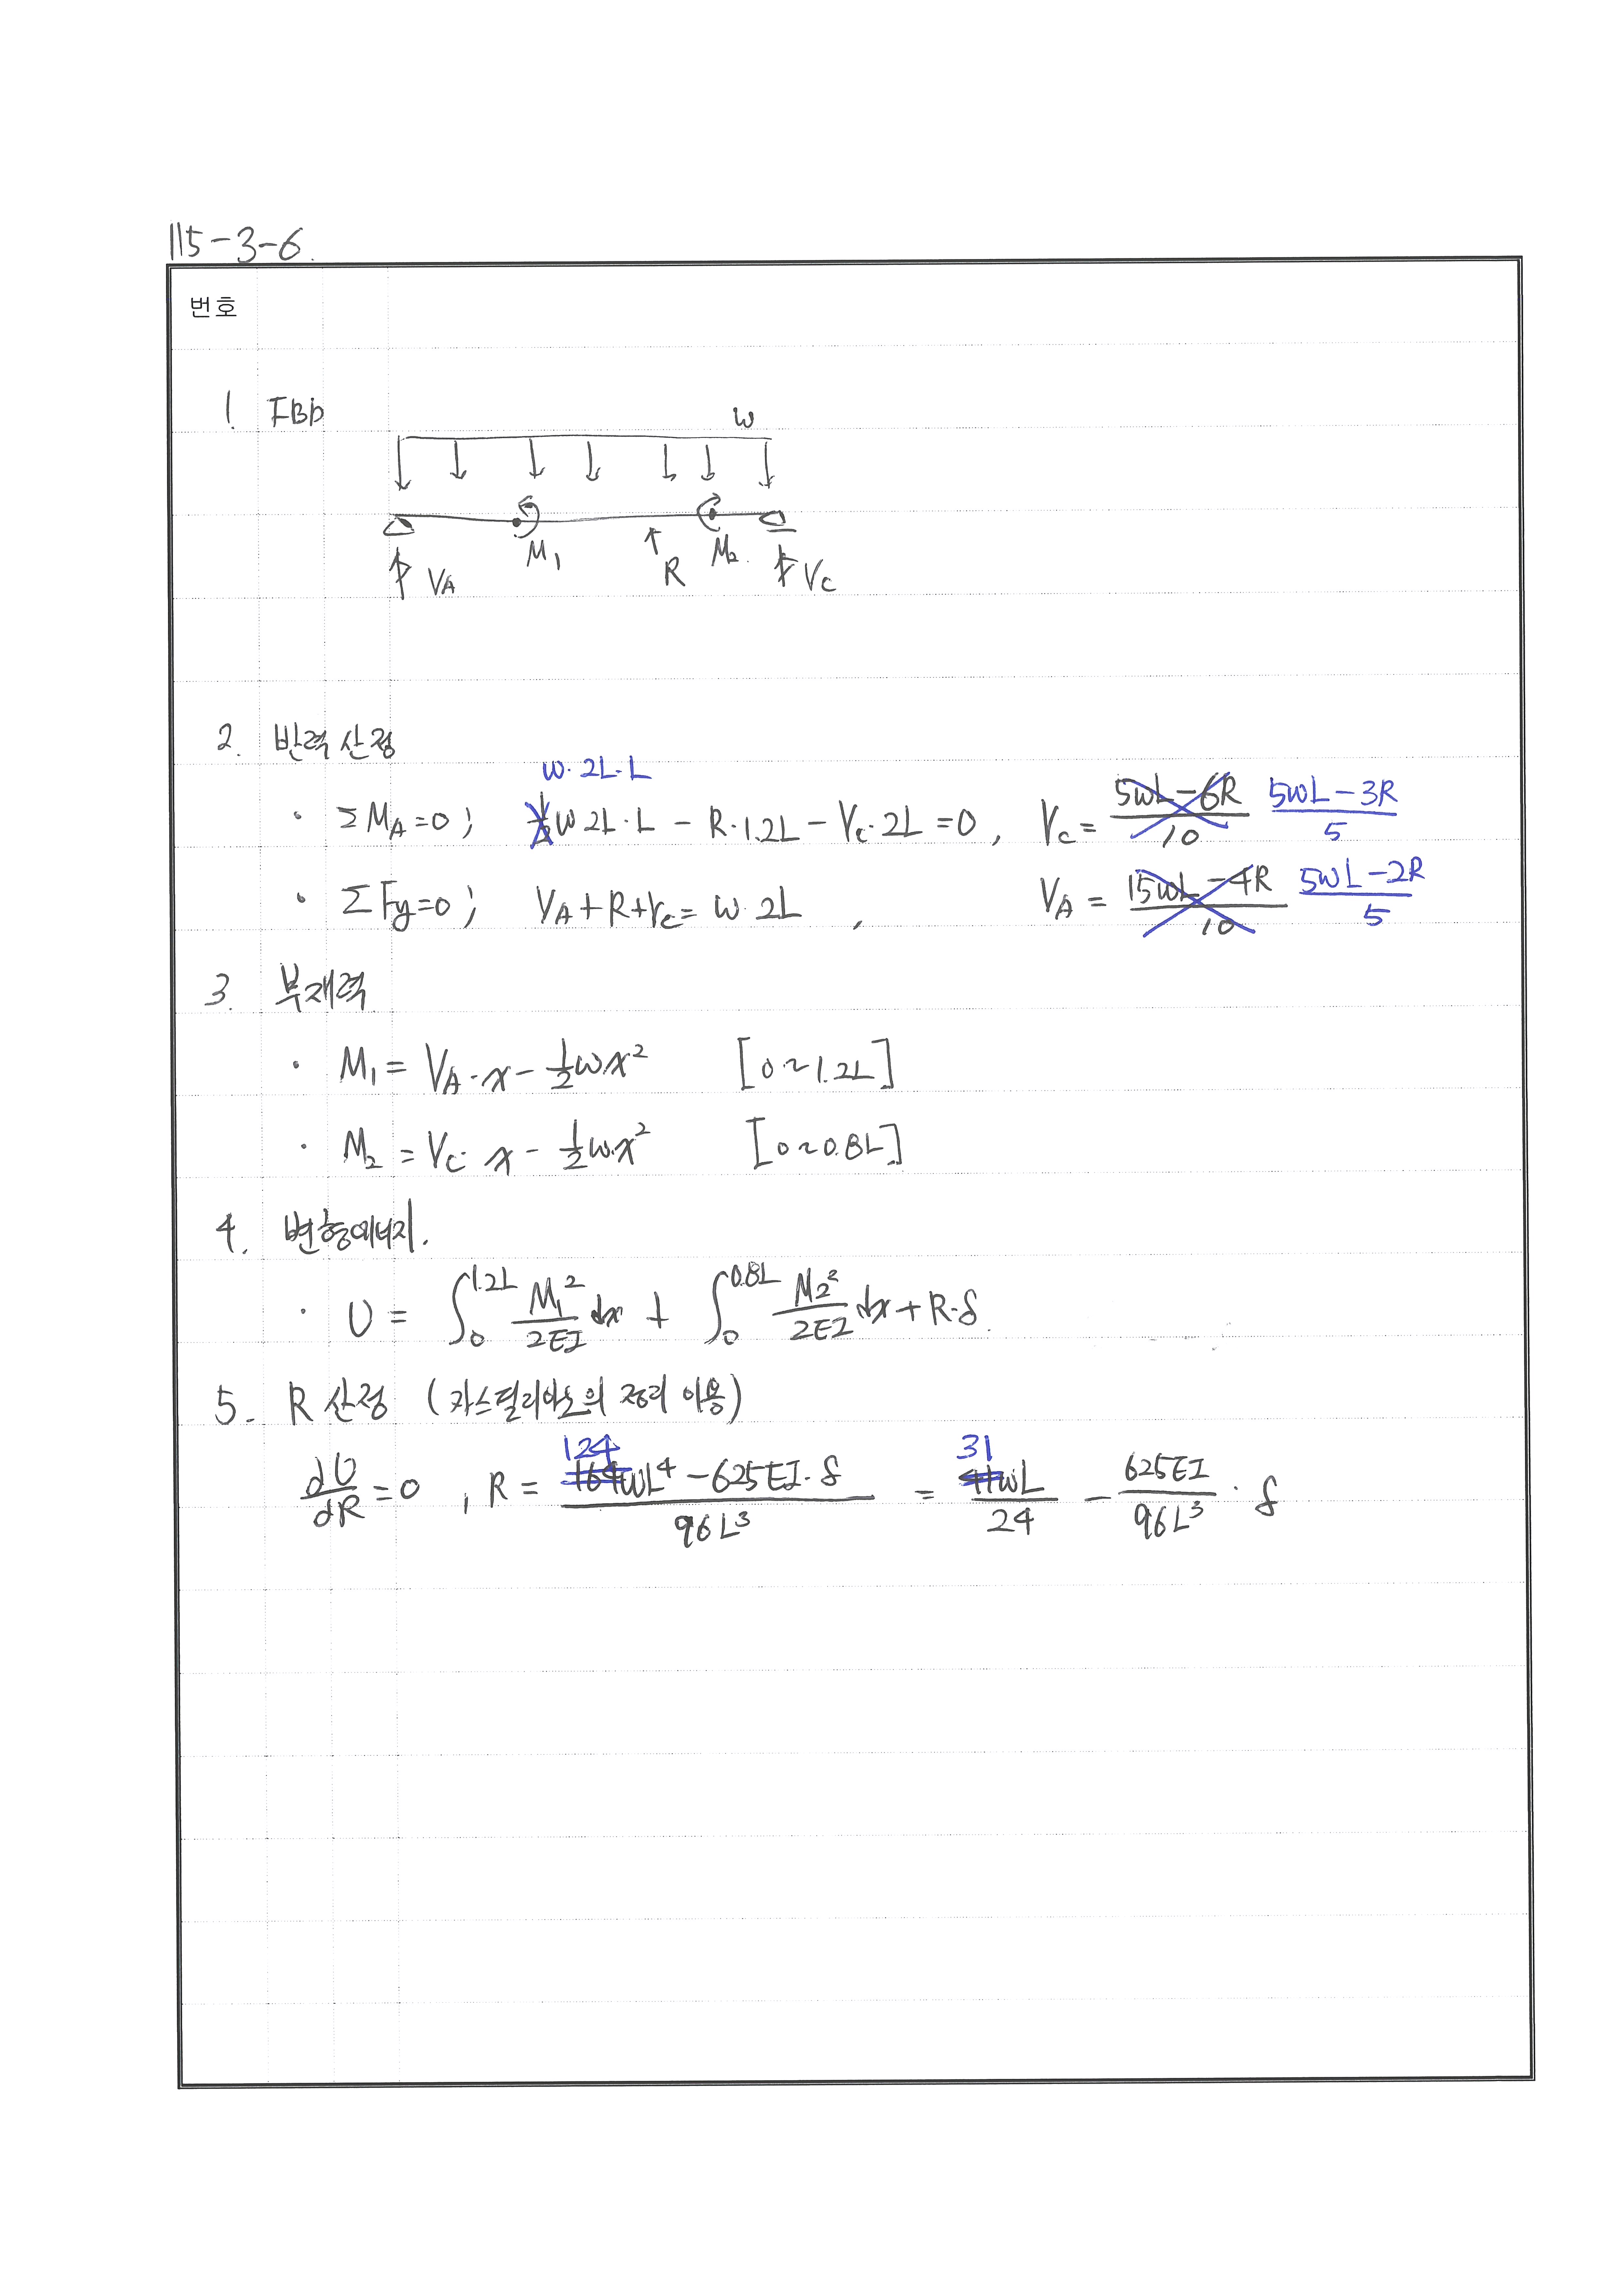 115-3-6.
번호
1. FBD
w
M1 R M2
VA Vc
2. 반력 산정
w·2L·L
· ΣMA=0 ; ½w 2L·L - R·1.2L - Vc·2L = 0 , Vc = (5wL-6R)/10 (5wL-3R)/5
· ΣFy=0 ; VA+R+Vc = w·2L , VA = (15wL-4R)/10 (5wL-2R)/5
3. 부재력
· M1 = VA·x - ½wx² [0~1.2L]
· M2 = Vc·x - ½wx² [0~0.8L]
4. 변형에너지.
· U = ∫₀^1.2L M1²/2EI dx + ∫₀^0.8L M2²/2EI dx + R·δ.
5. R 산정 (카스틸리아노의 정리 이용)
124 31
dU/dR = 0 , R = (164wL⁴ - 625EI·δ)/96L³ = 41wL/24 - 625EI/96L³ · δ